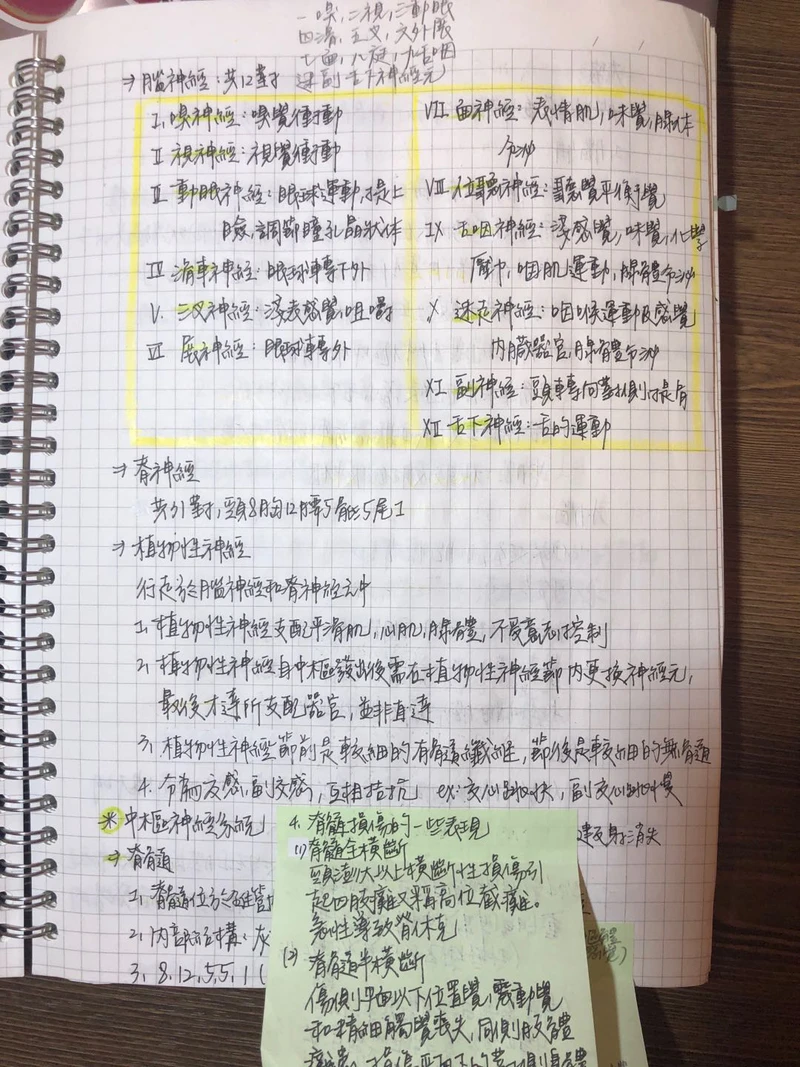 一嗅,二視,三動眼
四滑,五叉,六外展
七面,八庭,九舌咽
迷副舌下神經完
→腦神經:共12對
I、嗅神經:嗅覺衝動
II 視神經:視覺衝動
III 動眼神經:眼球運動,提上
瞼,調節瞳孔晶狀体
IV 滑車神經:眼球轉下外
V、三叉神經:淺表感覺,咀嚼
VI 展神經:眼球轉外
VII 面神經:表情肌,味覺,腺体
分泌
VIII 位聽神經:聽覺平衡覺
IX 舌咽神經:淺感覺,味覺,化學
壓力,咽肌運動,腺體分泌
X 迷走神經:咽喉運動及感覺
內臟器官,腺體分泌
XI 副神經:頭轉向對側,提肩
XII 舌下神經:舌的運動
→脊神經
共31對,頸8胸12腰5骶5尾1
→植物性神經
行走於腦神經和脊神經之中
1、植物性神經支配平滑肌,心肌,腺體,不受意志控制
2、植物性神經自中樞發出後需在植物性神經節內更換神經元,
最後才達所支配器官,並非直達
3、植物性神經節前是較細的有髓纖維,節後是較細的無髓
4、分為交感,副交感,互相拮抗 ex:交心跳快,副交心跳慢
*中樞神經系統
→脊髓
1、脊髓位於椎管
2、內部結構:灰
3、8,12,5,5,1(
反射消失
4、脊髓損傷的一些表現
(1)脊髓全橫斷
頸膨大以上橫斷性損傷引
起四肢癱又稱高位截癱。
急性導致脊休克
(2)脊髓半橫斷
傷側平面以下位置覺,震動覺
和精細觸覺喪失,同側肢體